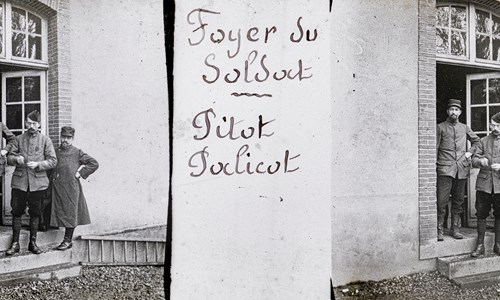 Foyer du
Soldat
Pitot
Palicot